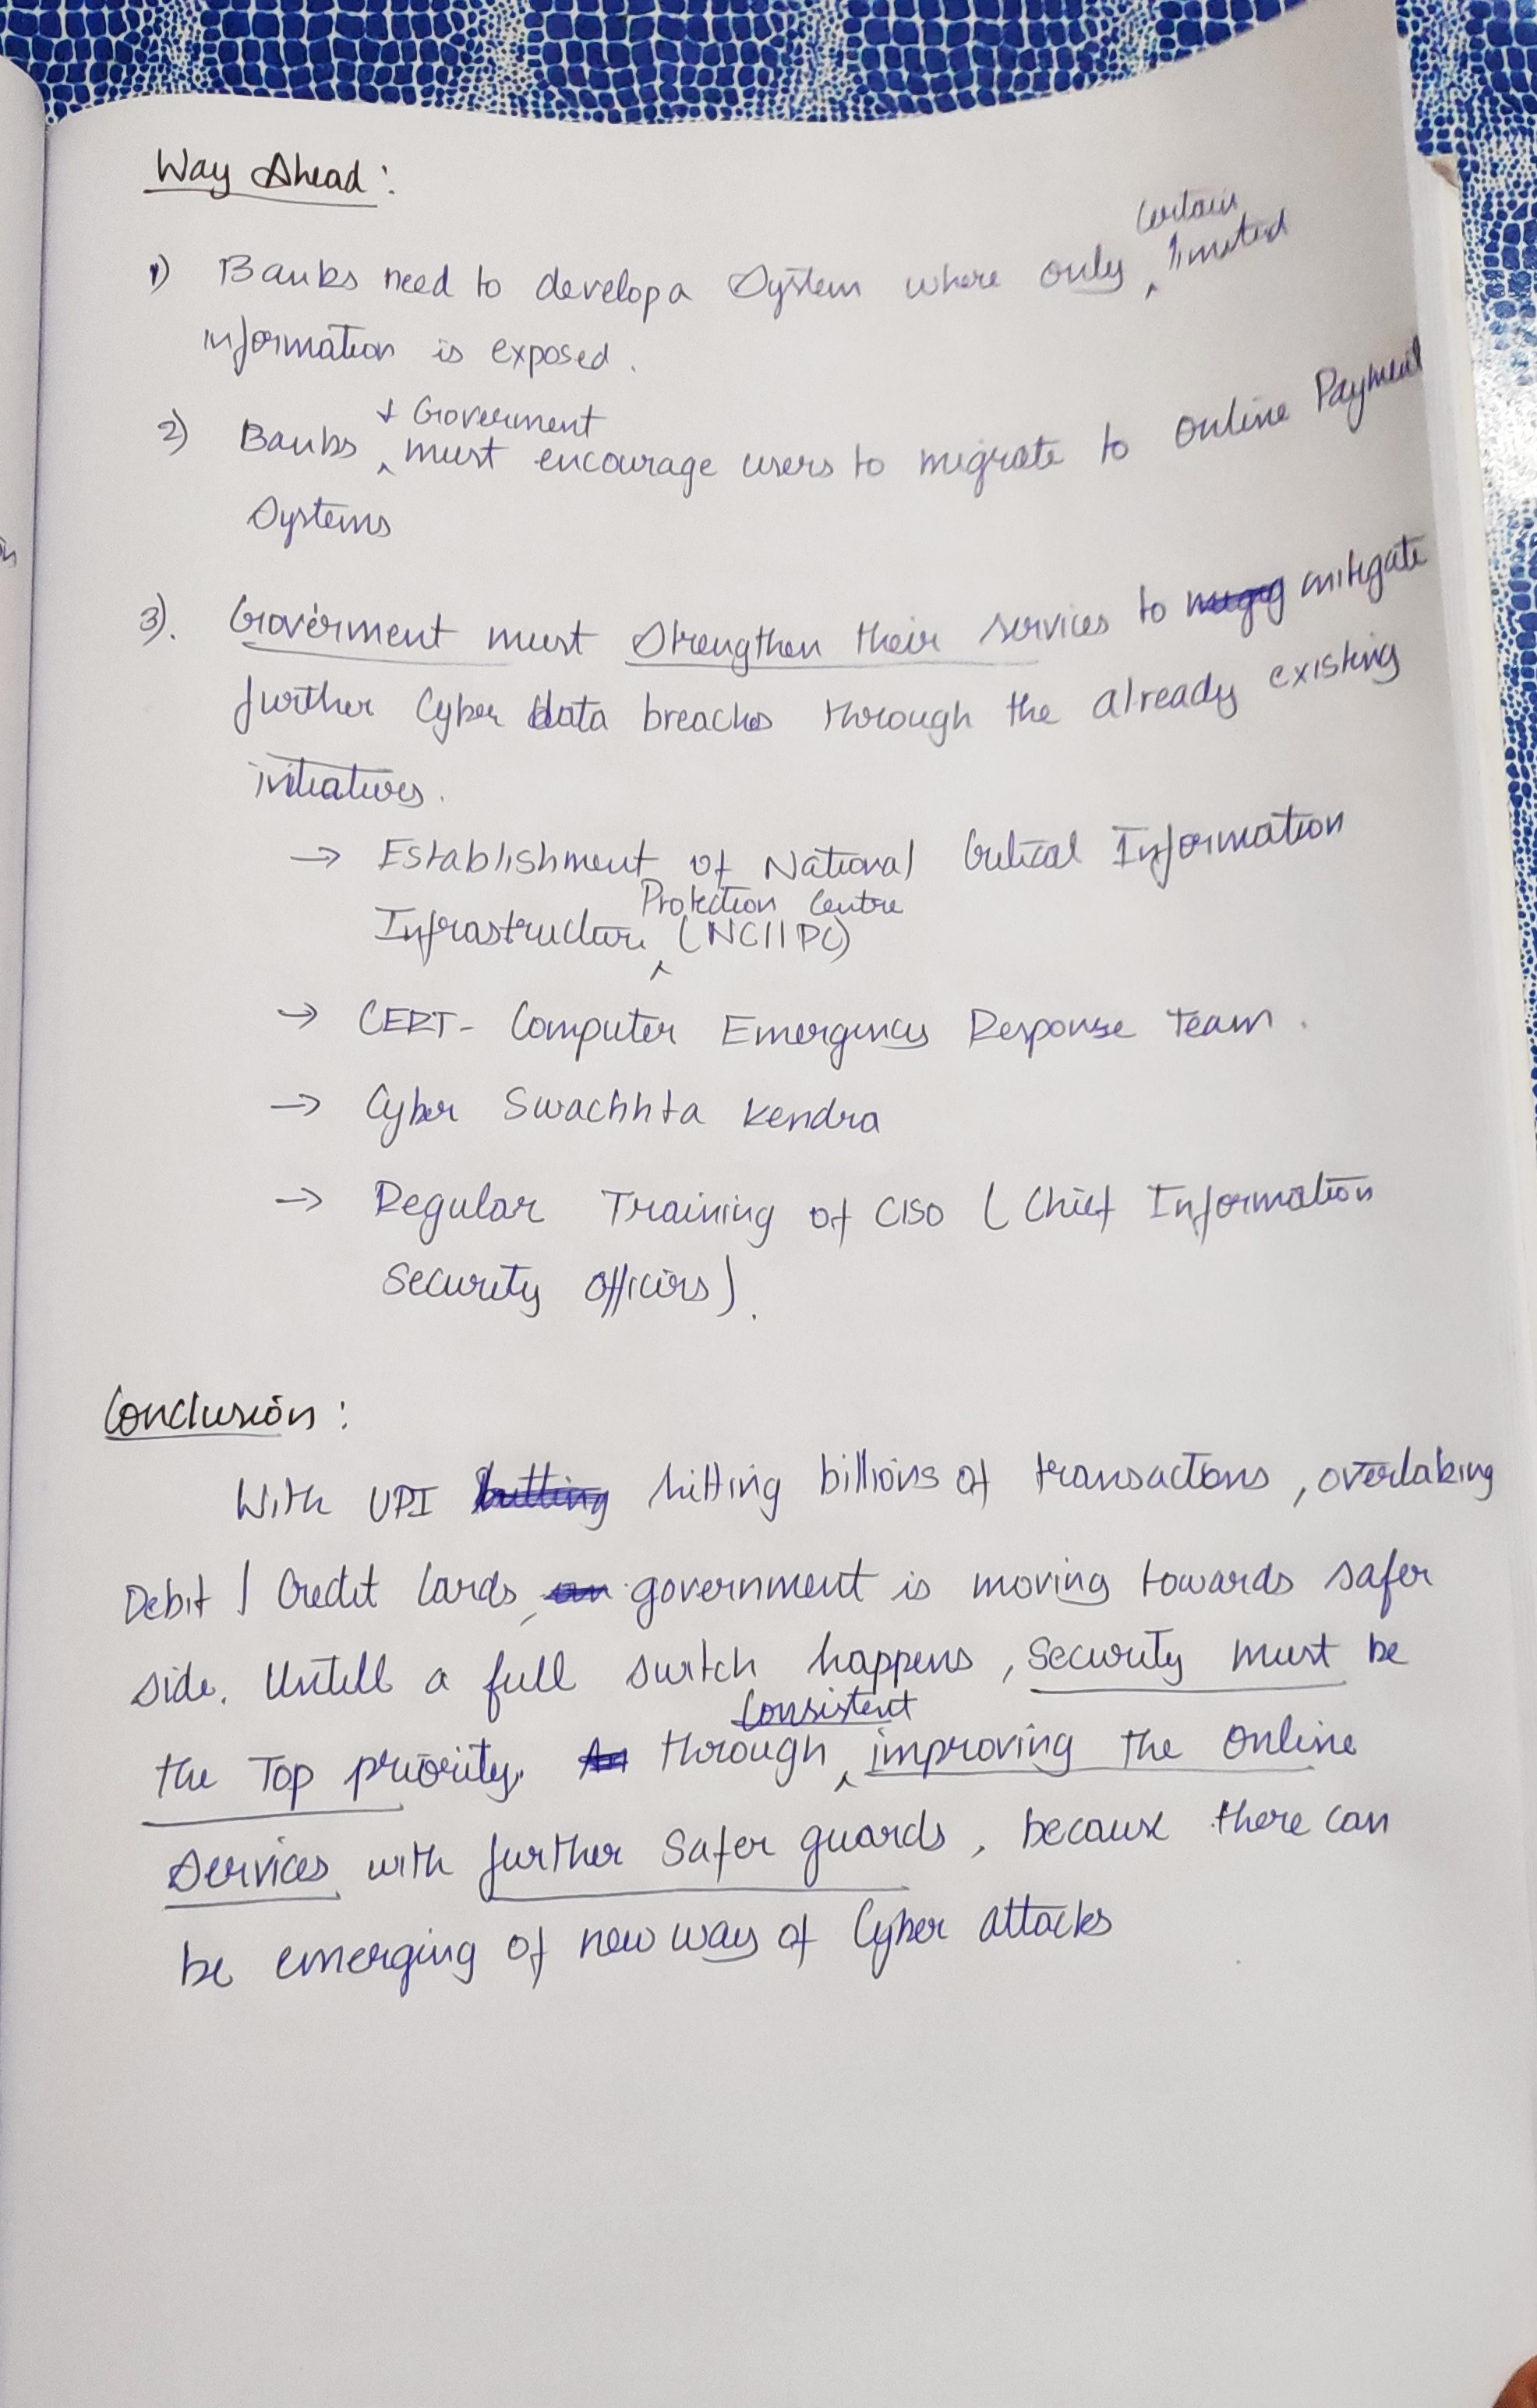 Way Ahead :
1) Banks need to develop a System where only certain limited
information is exposed.
2) Banks + Goverment must encourage users to migrate to Online Payment
Systems
3). Goverment must Strengthen their services to mitigate
further Cyber data breaches through the already existing
initiatives.
→ Establishment of National Critical Information
Infrastructure Protection Centre (NCIIPC)
→ CERT- Computer Emergency Response Team.
→ Cyber Swachhta Kendra
→ Regular Training of CISO (Chief Information
Security Officers).
Conclusion :
With UPI hitting billions of transactons, overtaking
Debit / Credit Cards, government is moving towards safer
side. Untill a full switch happens, Security must be
the Top priority. through Consistent improving the online
Services with further Safer guards, because there can
be emerging of new way of Cyber attacks